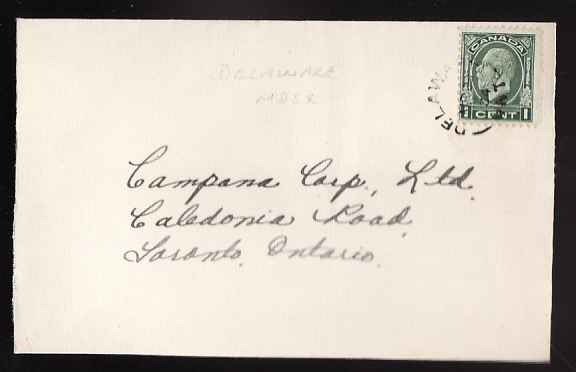 DELAWARE
MDSX
CANADA
1 CENT 1
DELAWA
Campana Corp., Ltd.
Caledonia Road,
Toronto, Ontario.